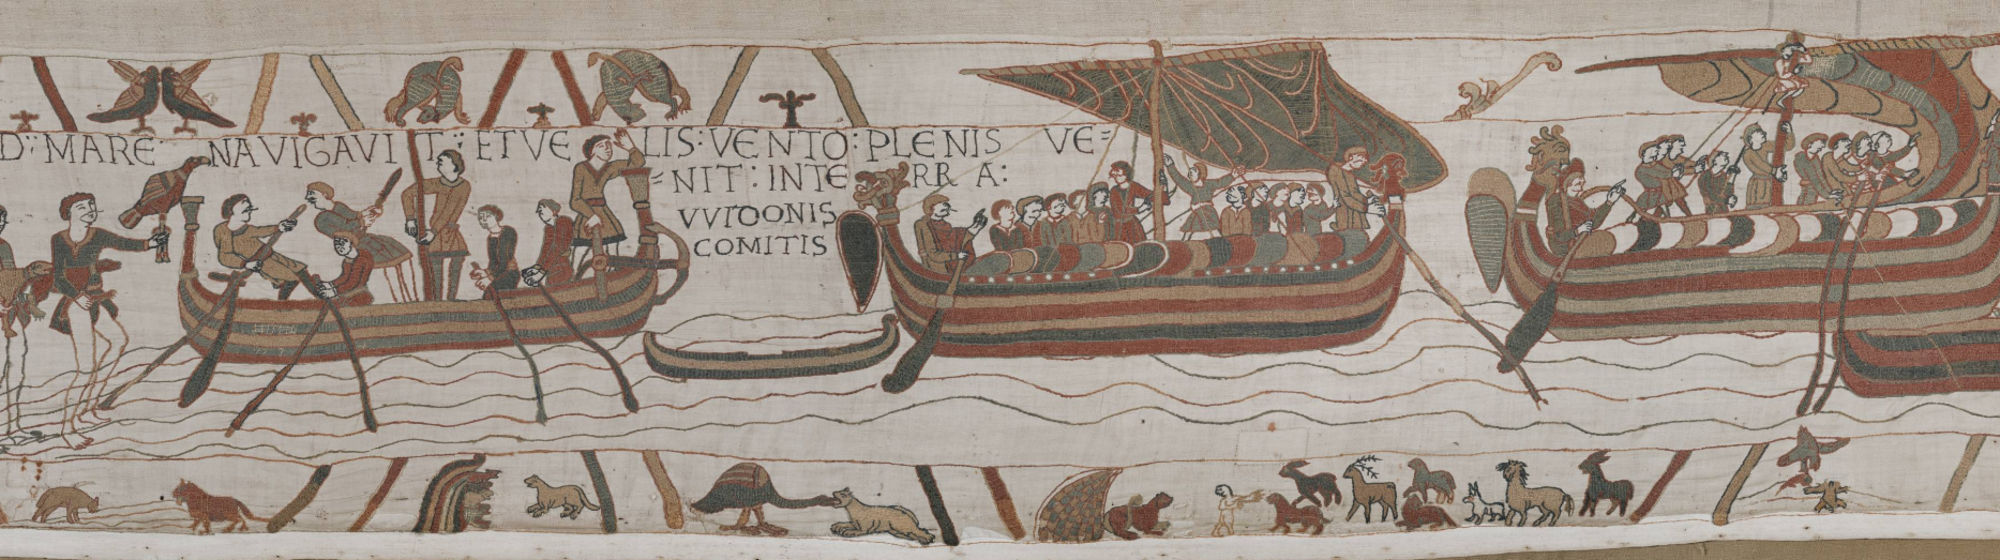 D:· MARE NAVIGAVIT: ET VELIS· VENTO: PLENIS VE=
=NIT: IN TERRA:
VVIDONIS
COMITIS